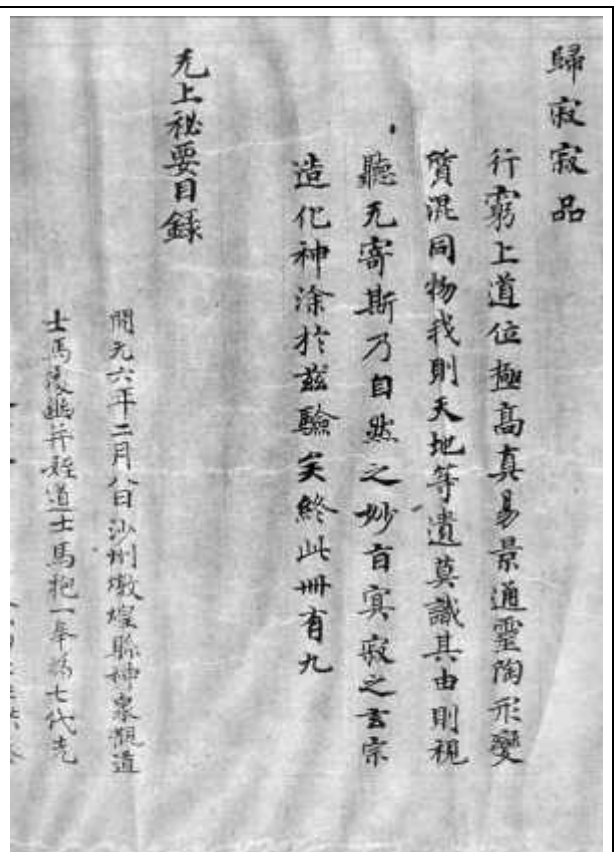 歸寂寂品
行窮上道位極高真易景通靈陶形變
質混同物我則天地等遺莫識其由則視
聽无寄斯乃自然之妙旨冥寂之玄宗
造化神塗於茲驗矣終此卌有九
无上祕要目錄
開元六年二月八日沙州燉煌縣神泉觀道
士馬處幽并姪道士馬抱一奉為七代先